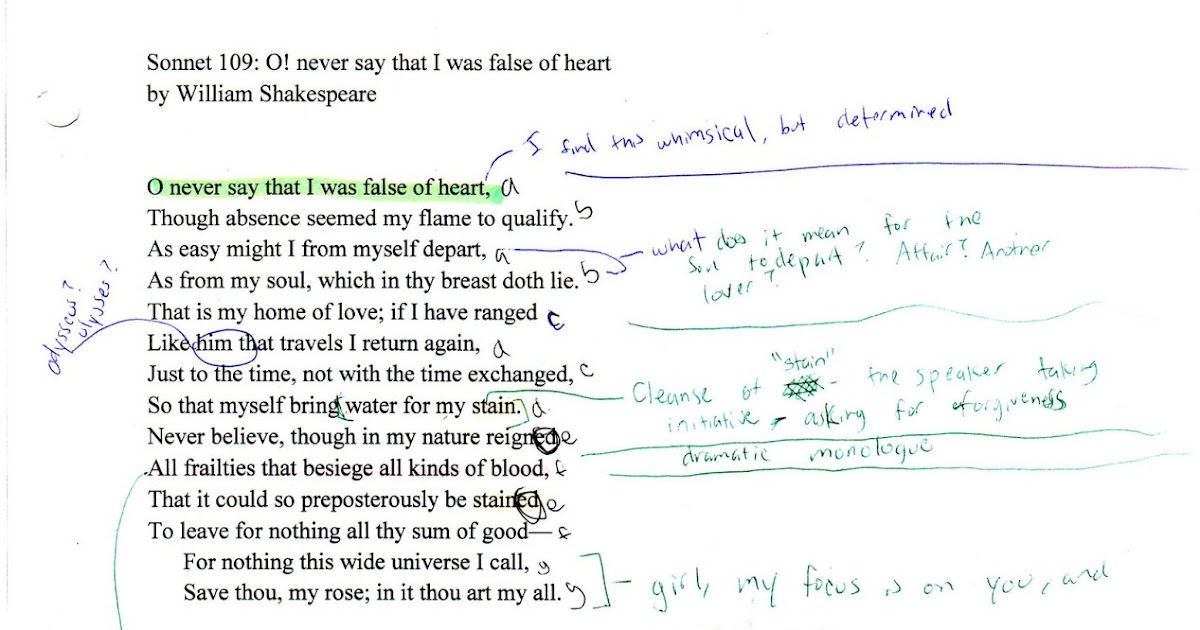 Sonnet 109: O! never say that I was false of heart
by William Shakespeare
I find this whimsical, but determined
O never say that I was false of heart, a
Though absence seemed my flame to qualify. b
As easy might I from myself depart, a
what does it mean for the
soul to depart? Affair? Another
lover?
As from my soul, which in thy breast doth lie. b
That is my home of love; if I have ranged c
odysseus?
ulysses?
Like him that travels I return again, d
Just to the time, not with the time exchanged, c
Cleanse of "stain" - the speaker taking
initiative - asking for forgiveness
So that myself bring water for my stain. d
Never believe, though in my nature reigned e
dramatic monologue
All frailties that besiege all kinds of blood, f
That it could so preposterously be stained e
To leave for nothing all thy sum of good— f
For nothing this wide universe I call, g
Save thou, my rose; in it thou art my all. g
girl, my focus is on you, and